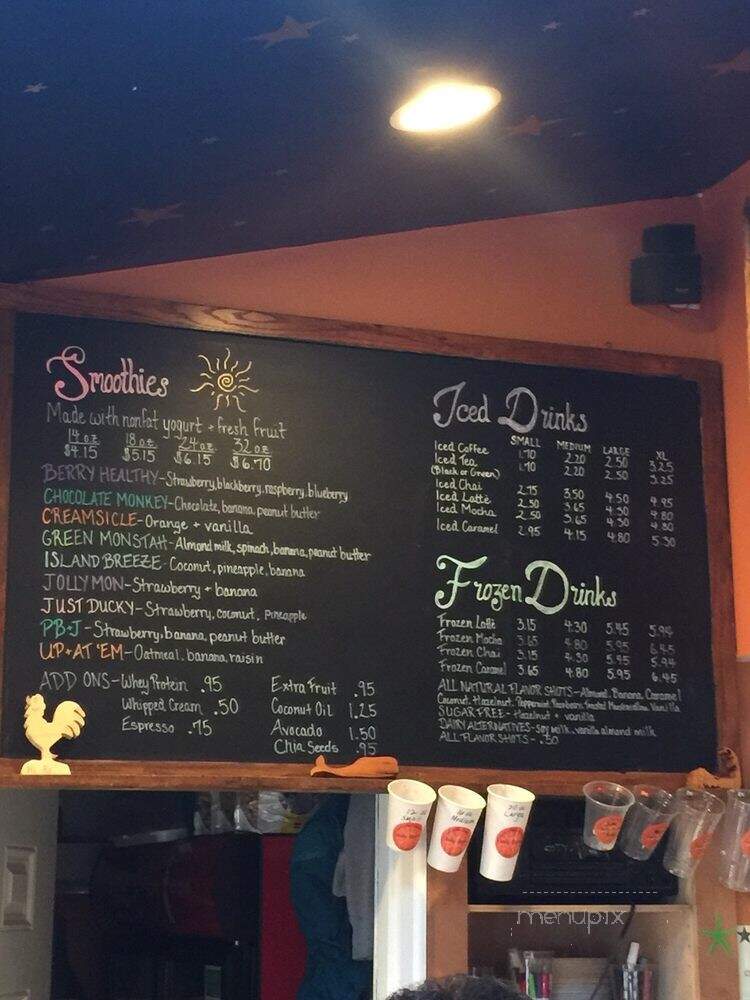 Smoothies
Made with nonfat yogurt + fresh fruit
14 oz 18 oz 24 oz 32 oz
$4.15 $5.15 $6.15 $6.70
BERRY HEALTHY-Strawberry, blackberry, raspberry, blueberry
CHOCOLATE MONKEY-Chocolate, banana, peanut butter
CREAMSICLE-Orange + vanilla
GREEN MONSTAH-Almond milk, spinach, banana, peanut butter
ISLAND BREEZE-Coconut, pineapple, banana
JOLLY MON-Strawberry + banana
JUST DUCKY-Strawberry, coconut, Pineapple
PB+J-Strawberry, banana, peanut butter
UP+AT 'EM-Oatmeal, banana, raisin
ADD ONS-Whey Protein .95
Whipped Cream .50
Espresso .75
Extra Fruit .95
Coconut Oil 1.25
Avocado 1.50
Chia Seeds .95
Iced Drinks
SMALL MEDIUM LARGE XL
Iced Coffee 1.70 2.20 2.50 3.25
Iced Tea 1.70 2.20 2.50 3.25
(Black or Green)
Iced Chai 2.75 3.50 4.50 4.95
Iced Latte 2.50 3.65 4.30 4.80
Iced Mocha 2.50 3.65 4.30 4.80
Iced Caramel 2.95 4.15 4.80 5.30
Frozen Drinks
Frozen Latte 3.15 4.30 5.45 5.94
Frozen Mocha 3.65 4.80 5.95 6.45
Frozen Chai 3.15 4.30 5.45 5.94
Frozen Caramel 3.65 4.80 5.95 6.45
ALL NATURAL FLAVOR SHOTS-Almond, Banana, Caramel
Coconut, Hazelnut, Peppermint, Raspberry, Toasted Marshmallow, Vanilla
SUGAR FREE-Hazelnut + vanilla
DAIRY ALTERNATIVES-Soy milk, vanilla almond milk
ALL FLAVOR SHOTS-.50
12 oz Small
16 oz Medium
20 oz Large
menupix